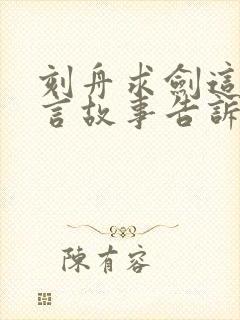 刻舟求劍這
言故事告訴
陳有容